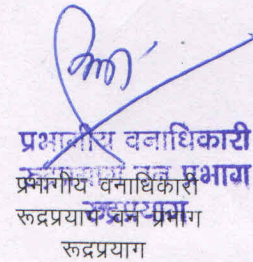 प्रभागीय वनाधिकारी
रूद्रप्रयाग वन प्रभाग
रूद्रप्रयाग
प्रभागीय वनाधिकारी
रूद्रप्रयाग वन प्रभाग
रूद्रप्रयाग